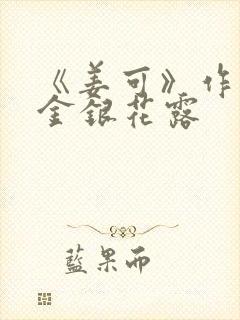 《姜可》作
金银花露
蓝果而